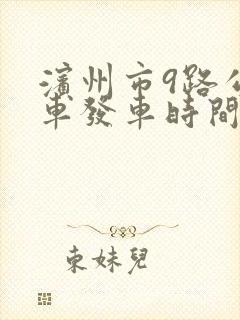 濱州市9路公
車發車時間
東妹兒